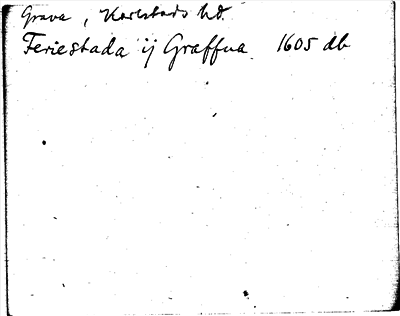 Grava, Karlstads hd.
Feriestada ij Graffua 1605 db